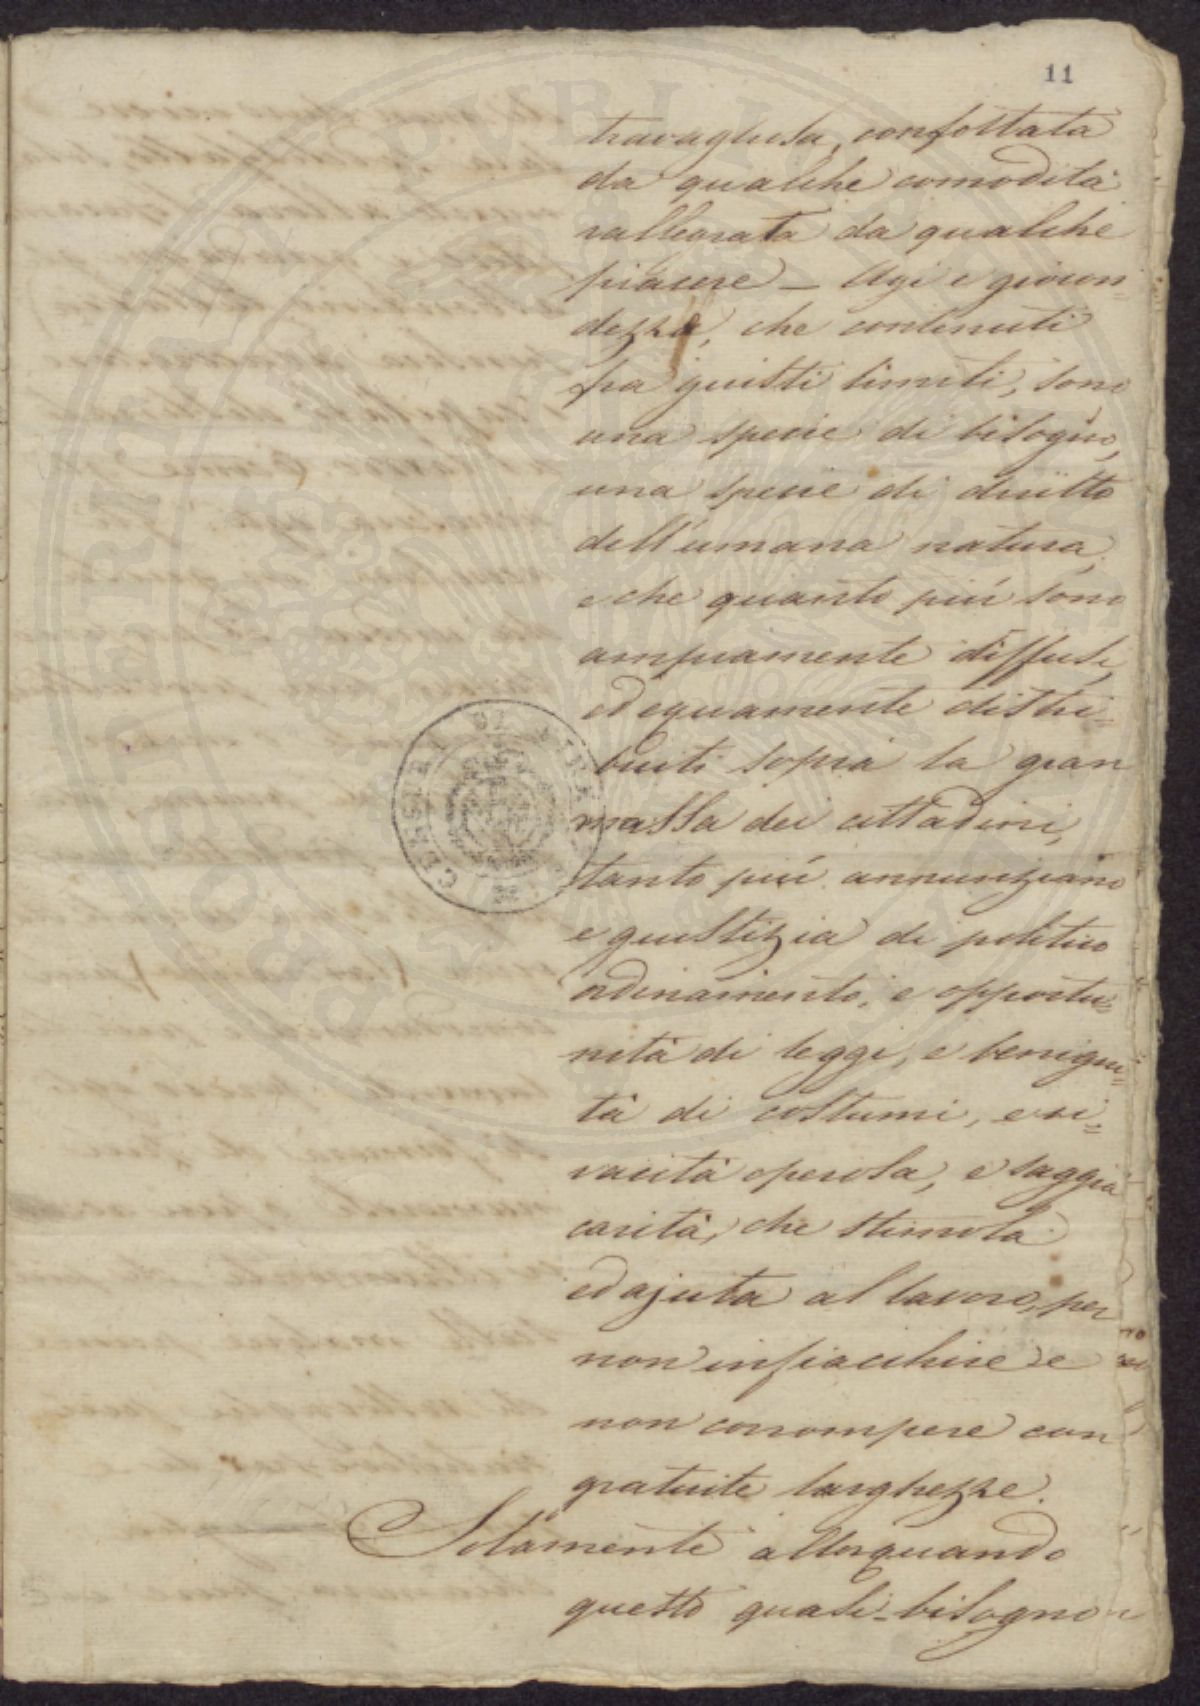 11
travagliosa, confortata
da qualche comodità
rallegrata da qualche
piacere – Agi e giocon-
dezza, che contenuti
fra giusti limiti, sono
una specie di bisogno,
una specie di diritto
dell'umana natura,
e che quanto più sono
ampiamente diffusi,
ed equamente distri=
buiti sopra la gran
massa dei cittadini,
tanto più annunziano
e giustizia di politico
ordinamento, e opportu=
nità di leggi, e benigni=
tà di costumi, e vi=
vacità operosa, e saggia
carità, che stimola
ed ajuta al lavoro, per
non infiacchire e
non corrompere con
gratuite larghezze.
Solamente allorquando
questo quasi-bisogno